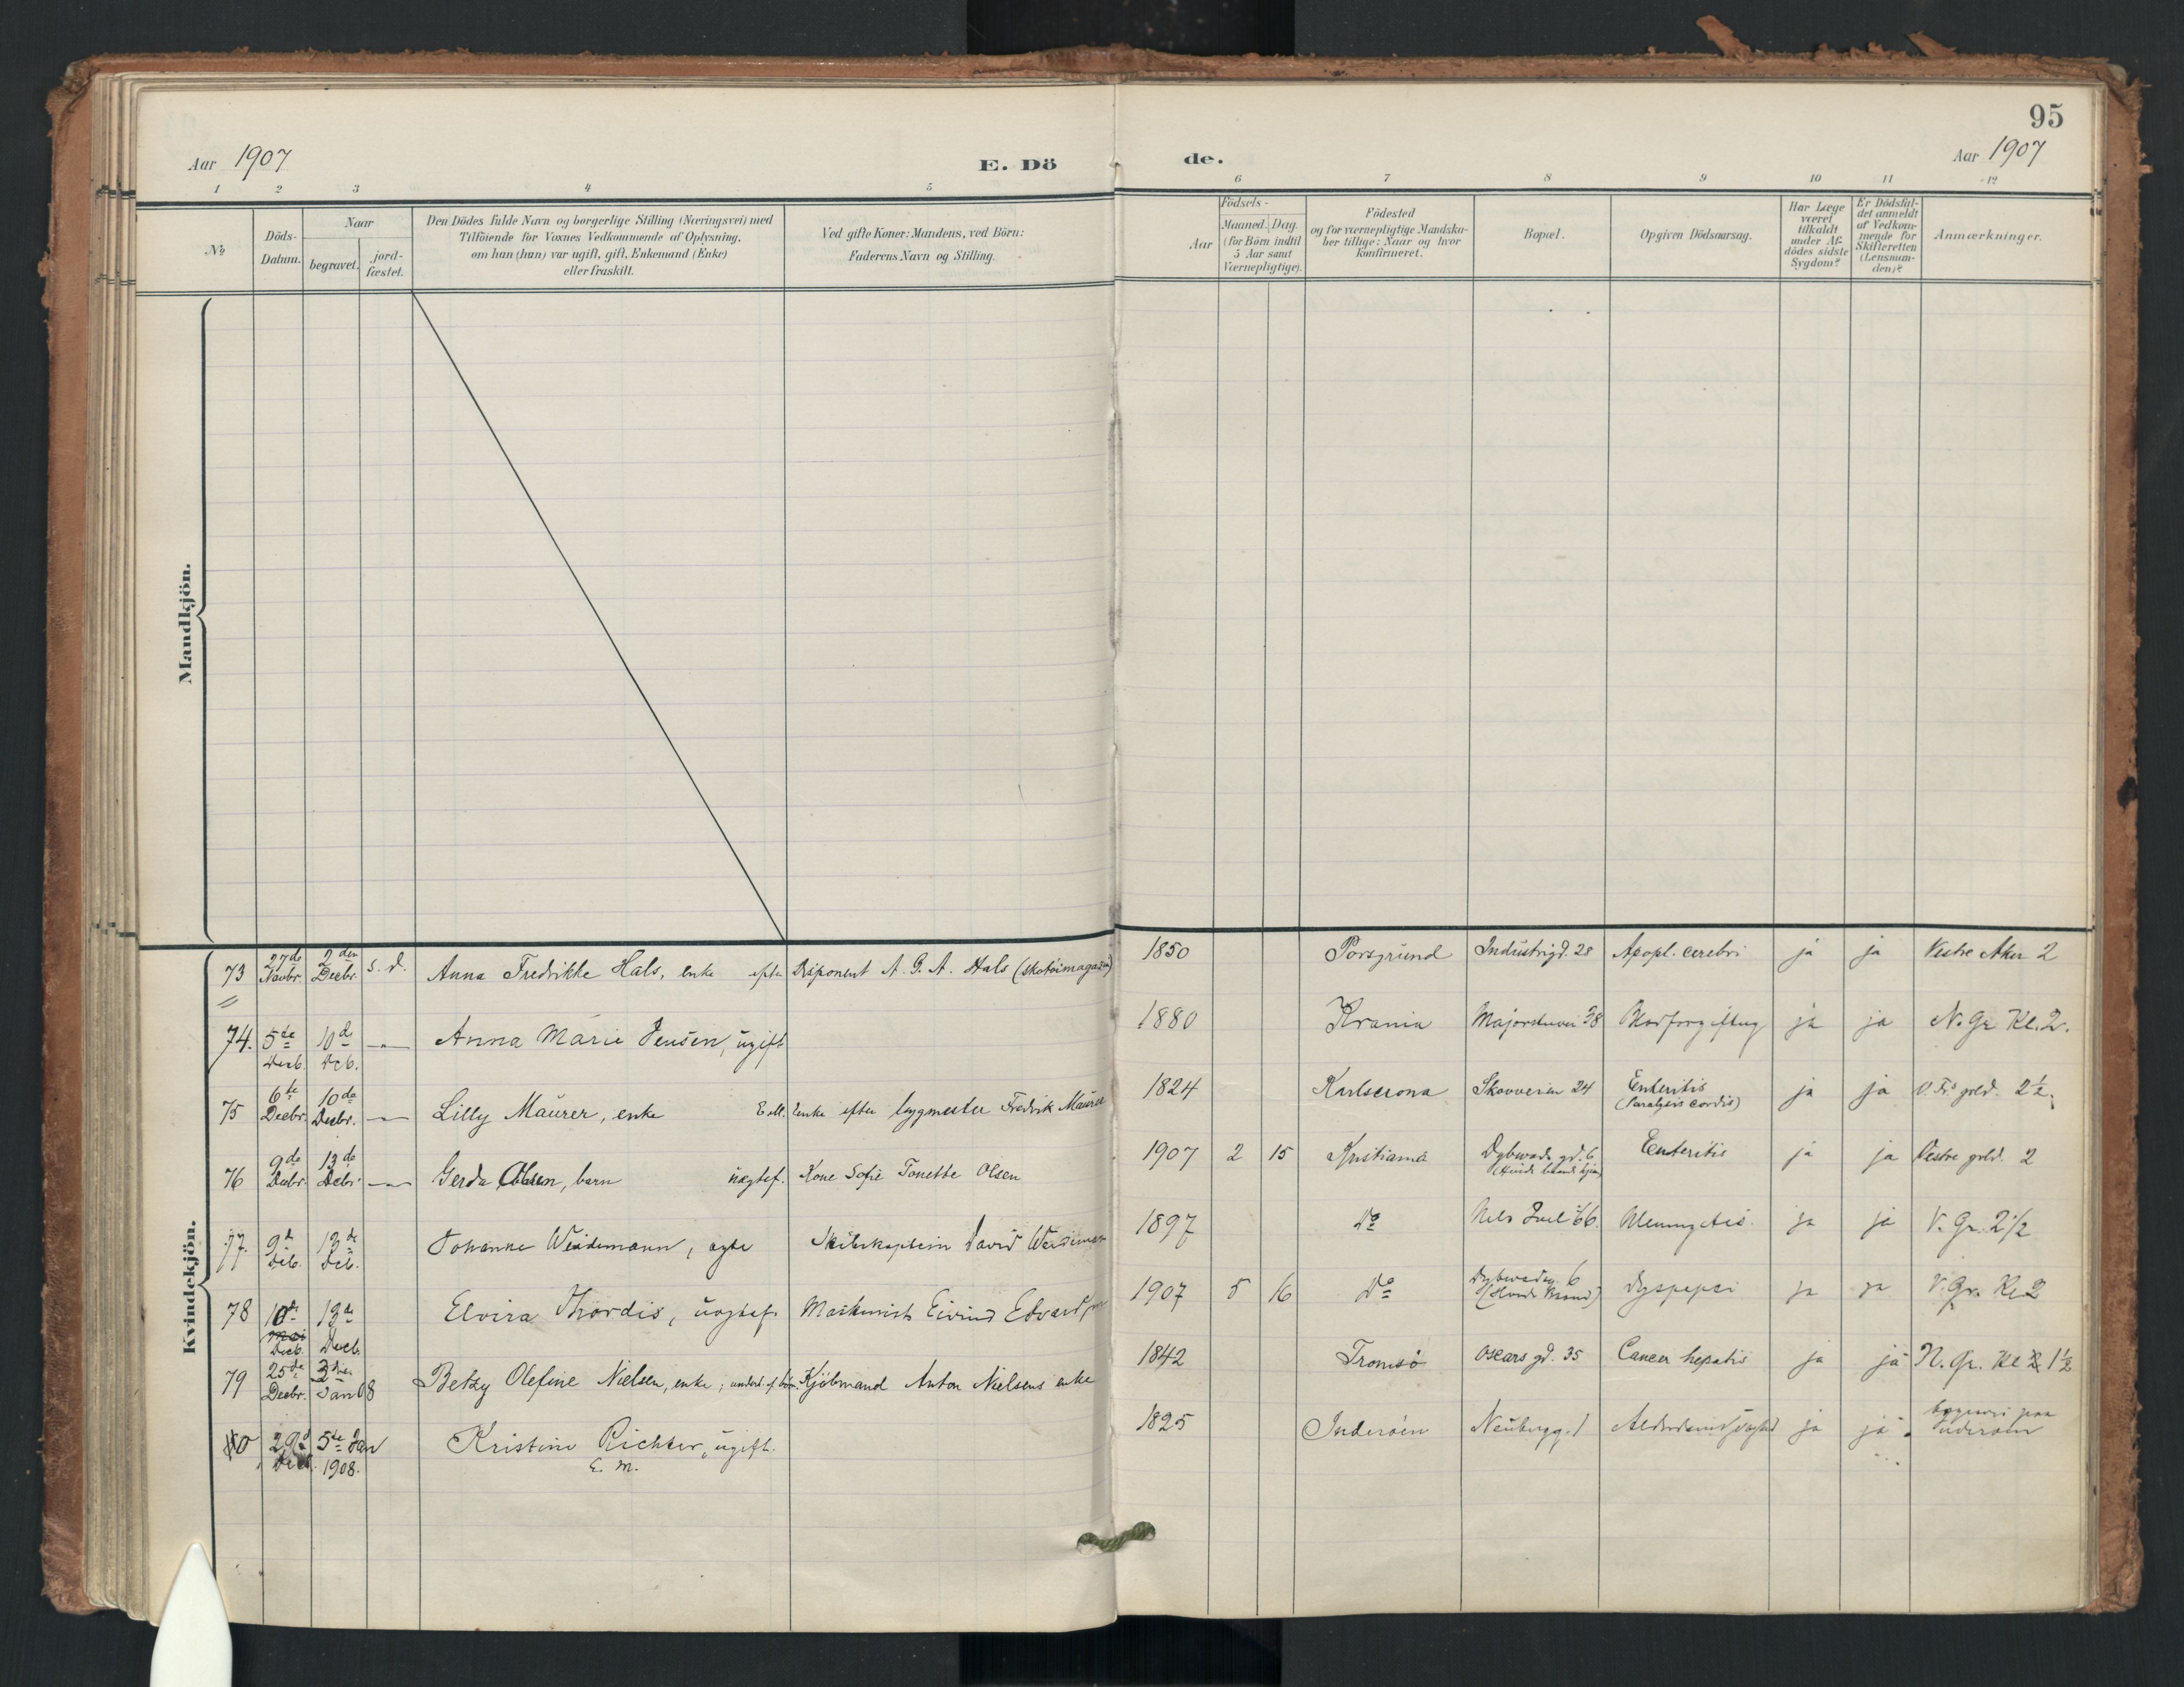 95
Aar 1907
E. Dö
de.
Aar 1907
1 2 3 4 5 6 7 8 9 10 11 12
No
Döds-
Datum.
Naar
begravet.
jord-
fæstet.
Den Dödes fulde Navn og borgerlige Stilling (Næringsvei) med
Tilföiende for Voxnes Vedkommende af Oplysning,
om han (hun) var ugift, gift, Enkemand (Enke)
eller fraskilt.
Ved gifte Koner: Mandens, ved Börn:
Faderens Navn og Stilling.
Aar
Födsels-
Maaned. Dag.
(for Börn indtil
5 Aar samt
Værnepligtige).
Födested
og for værnepligtige Mandska-
ber tillige: Naar og hvor
konfirmeret.
Bopæl.
Opgiven Dödsaarsag.
Har Læge
været
tilkaldt
under Af-
dödes sidste
Sygdom?
Er Dödsfal-
det anmeldt
af Vedkom-
mende for
Skifteretten
(Lensman-
den)?
Anmærkninger.
Mandkjön.
Kvindekjön.
73 27de Novbr. 2den Decbr. s. d. Anna Fredrikke Hals, enke efter Disponent A. G. A. Hals (skotöimagasin) 1850 Porsgrund Industrigd. 28 Apopl. cerebri ja ja Vestre Aker 2
74. 5te Decb. 10de Dcb. Anna Marie Jensen, ugift 1880 Krania Majorstuvei 38 Blodforgiftng ja ja N. Gr Kl. 2.
75 6te Decbr. 10de Decbr. Lilly Maurer, enke enke efter bygmester Fredrik Maurer 1824 Karlscrona Skovveien 24 Enteritis
(Paralysis cordis) ja ja V. Fr. grld. 2½.
76 9de Decbr. 13de Decbr. Gerda Olsen, barn uægtef. Kone Sofie Tonette Olsen 1907 2 15 Kristiania Dybwads gd. 6 Enteritis ja ja Vestre grld. 2
77. 9de Dcb. 13de Dcb. Johanne Weidemann, ægte Skibskaptein David Weidemann 1897 Do Nels Juel 66. Meningitis. ja ja V. Gr. 2 1/2
78 10de Decb. 13de Decb. Elvira Thordis, uægtef. Maskinist Eivind Edvardsen 1907 5 16 Do Dybwadsg. 6 Dyspepsi ja ja V. Gr. Kl 2
79 25de Decbr. 3die Jan 08 Betzy Olefine Nielsen, enke; underh. af börn. Kjöbmand Anton Nielsens enke 1842 Tromsö Oscars gd. 35 Cancer hepatis ja ja N. Gr. Kl 1½
80 29de Decb. 5te Jan 1908. Kristine Richter, ugift.
E. M. 1825 Inderöen Neubergg. 1 ja ja
Inderöen